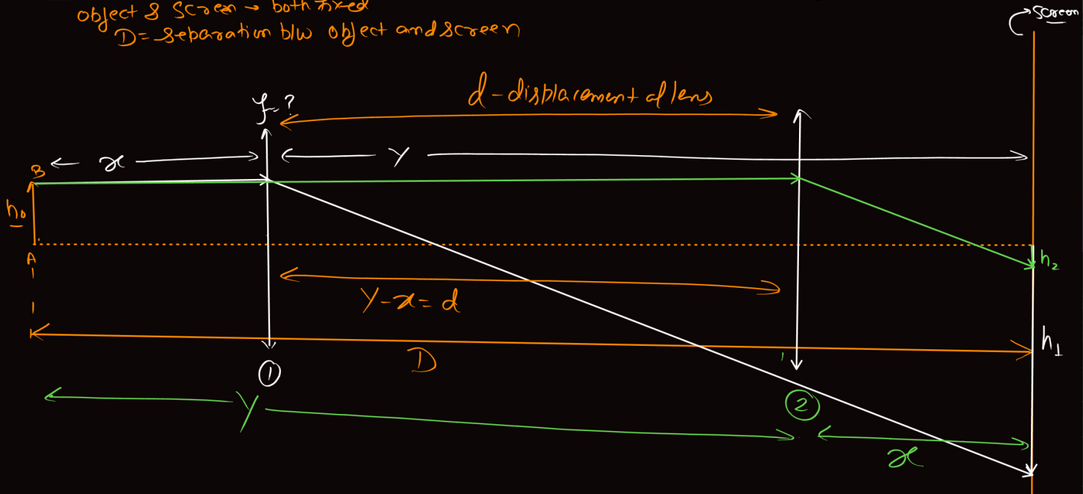 object & screen → both fixed
D = separation b/w object and screen
screen
d - displacement of lens
f = ?
x
y
B
h₀
A
h₂
y - x = d
D
h₁
①
②
y
x